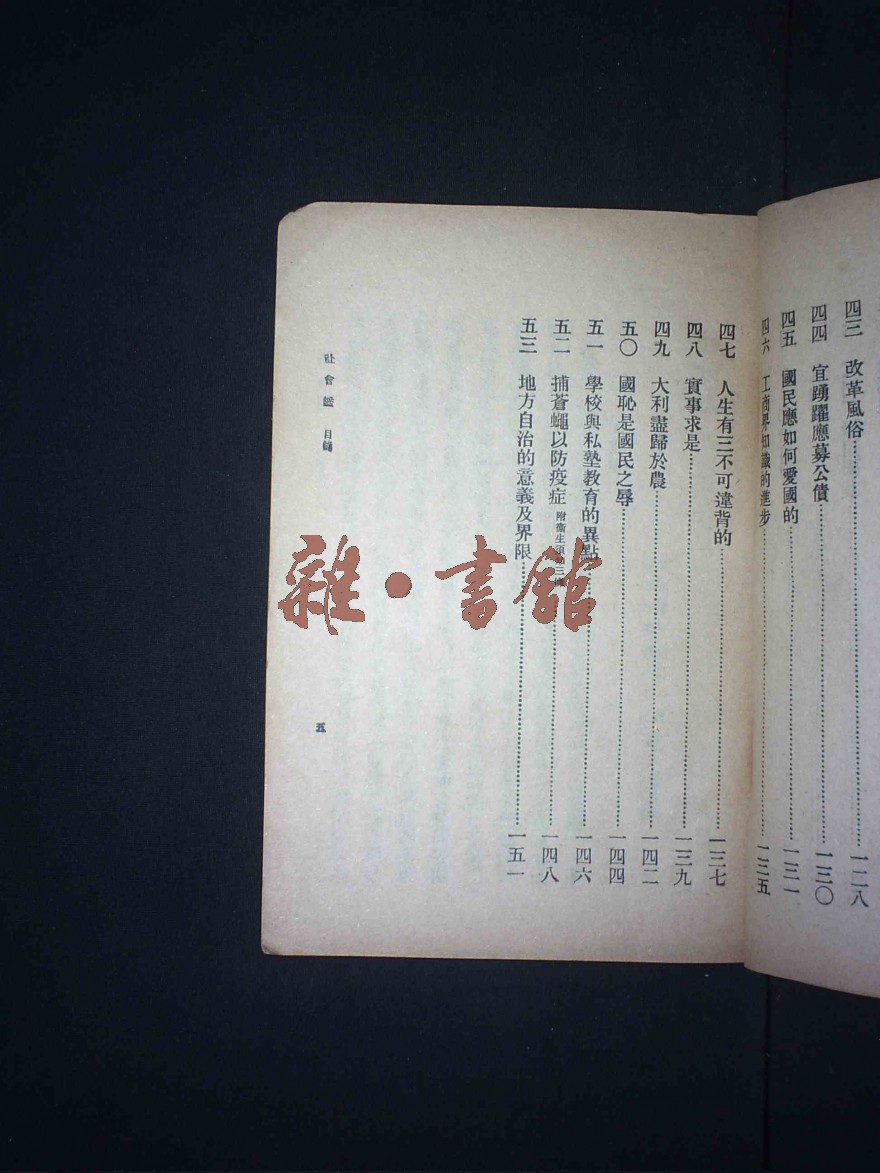 四三 改革風俗 一二八
四四 宜踴躍應募公債 一三〇
四五 國民應如何愛國的 一三一
四六 工商界知識的進步 一三五
四七 人生有三不可違背的 一三七
四八 實事求是 一三九
四九 大利盡歸於農 一四二
五〇 國恥是國民之辱 一四四
五一 學校與私塾教育的異點 一四六
五二 捕蒼蠅以防疫症 附衞生 一四八
五三 地方自治的意義及界限 一五一
社會鑑 目錄 五
雜·書館